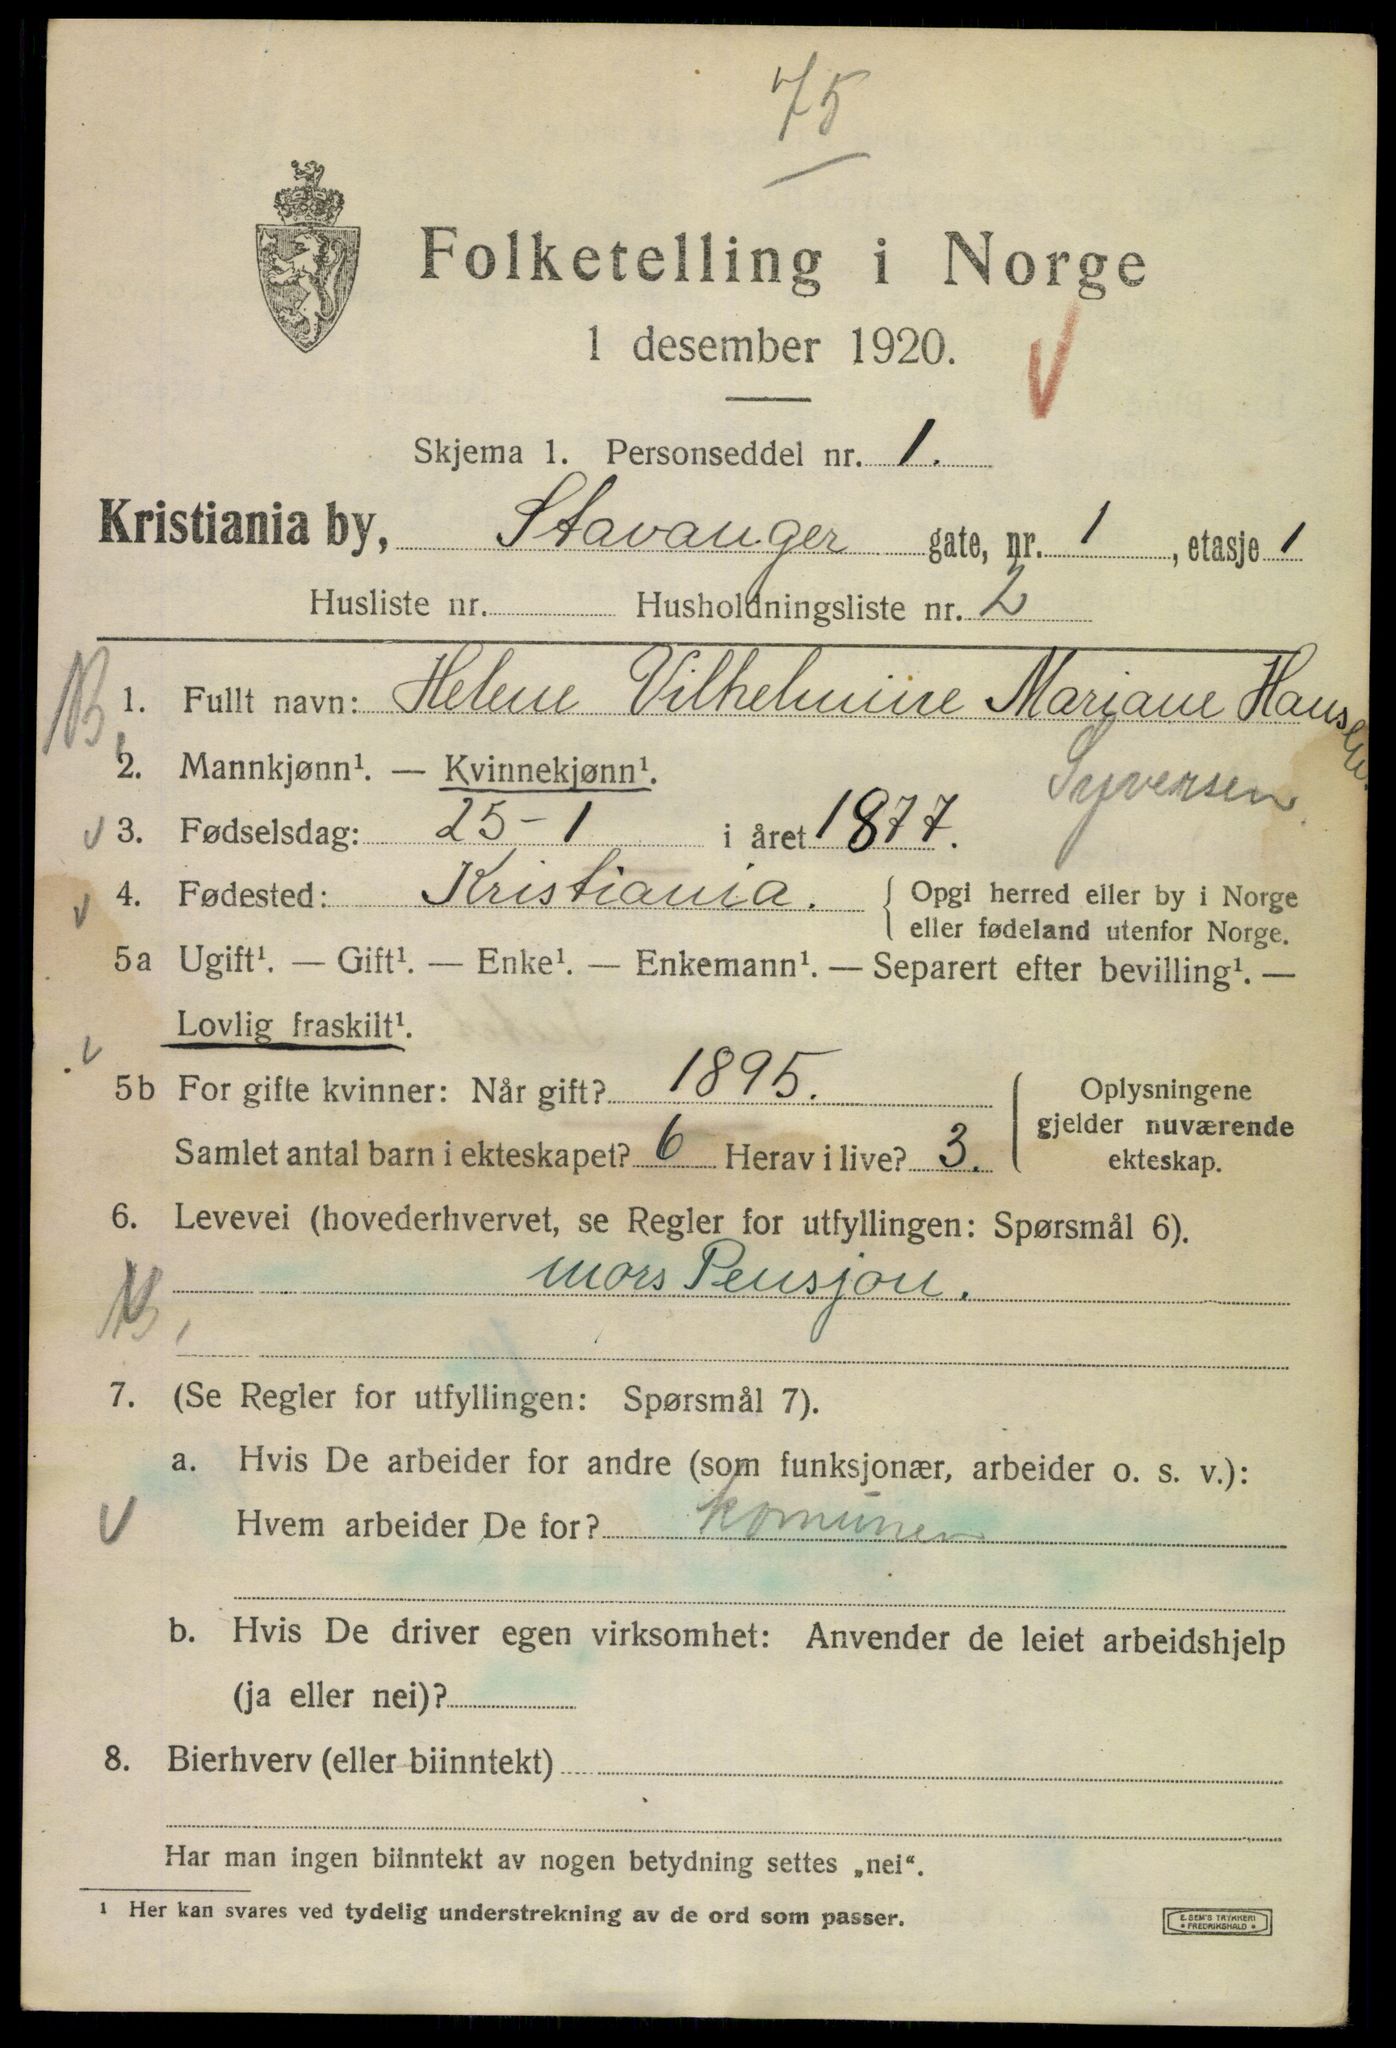 75
Folketelling i Norge
1 desember 1920.
Skjema 1. Personseddel nr. 1.
Kristiania by, Stavanger gate, nr. 1, etasje 1
Husliste nr. Husholdningsliste nr. 2
NB, 1. Fullt navn: Helene Vilhelmine Mariane Hansen
Syversen
2. Mannkjønn¹. — Kvinnekjønn¹.
3. Fødselsdag: 25-1 i året 1877.
4. Fødested: Kristiania. { Opgi herred eller by i Norge
eller fødeland utenfor Norge.
5a Ugift¹. — Gift¹. — Enke¹. — Enkemann¹. — Separert efter bevilling¹. —
Lovlig fraskilt¹.
5b For gifte kvinner: Når gift? 1895.
Samlet antal barn i ekteskapet? 6 Herav i live? 3.
Oplysningene
gjelder nuværende
ekteskap.
6. Levevei (hovederhvervet, se Regler for utfyllingen: Spørsmål 6).
mors Pensjon.
NB,
7. (Se Regler for utfyllingen: Spørsmål 7).
a. Hvis De arbeider for andre (som funksjonær, arbeider o. s. v.):
Hvem arbeider De for? komunen
b. Hvis De driver egen virksomhet: Anvender de leiet arbeidshjelp
(ja eller nei)?
8. Bierhverv (eller biinntekt)
Har man ingen biinntekt av nogen betydning settes „nei“.
¹ Her kan svares ved tydelig understrekning av de ord som passer.
E. SEM'S TRYKKERI
FREDRIKSHALD